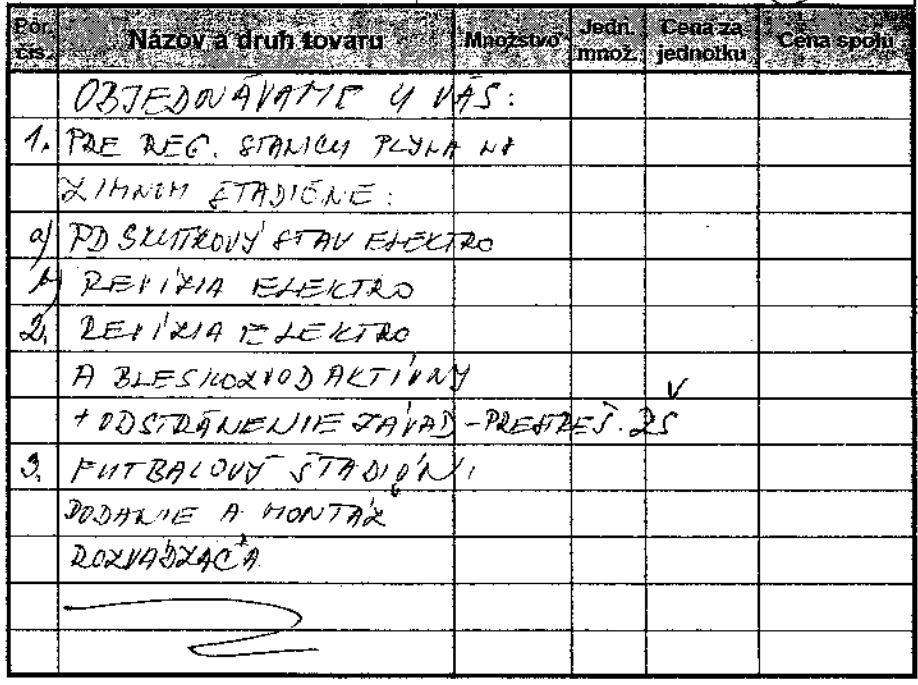 Por. čís. Názov a druh tovaru Množstvo Jedn. množ. Cena za jednotku Cena spolu
OBJEDNÁVAME U VÁS:
1. PRE REG. STANICU PLYNA NA
ZIMNOM ŠTADIÓNE:
a) PD SKUTKOVÝ STAV ELEKTRO
b) REVÍZIA ELEKTRO
2. REVÍZIA ELEKTRO
A BLESKOZVOD AKTÍVNY
+ ODSTRÁNENIE ZÁVAD - PRESTREŠ. ZŠ
3. FUTBALOVÝ ŠTADIÓN:
DODANIE A MONTÁŽ
ROZVÁDZAČA